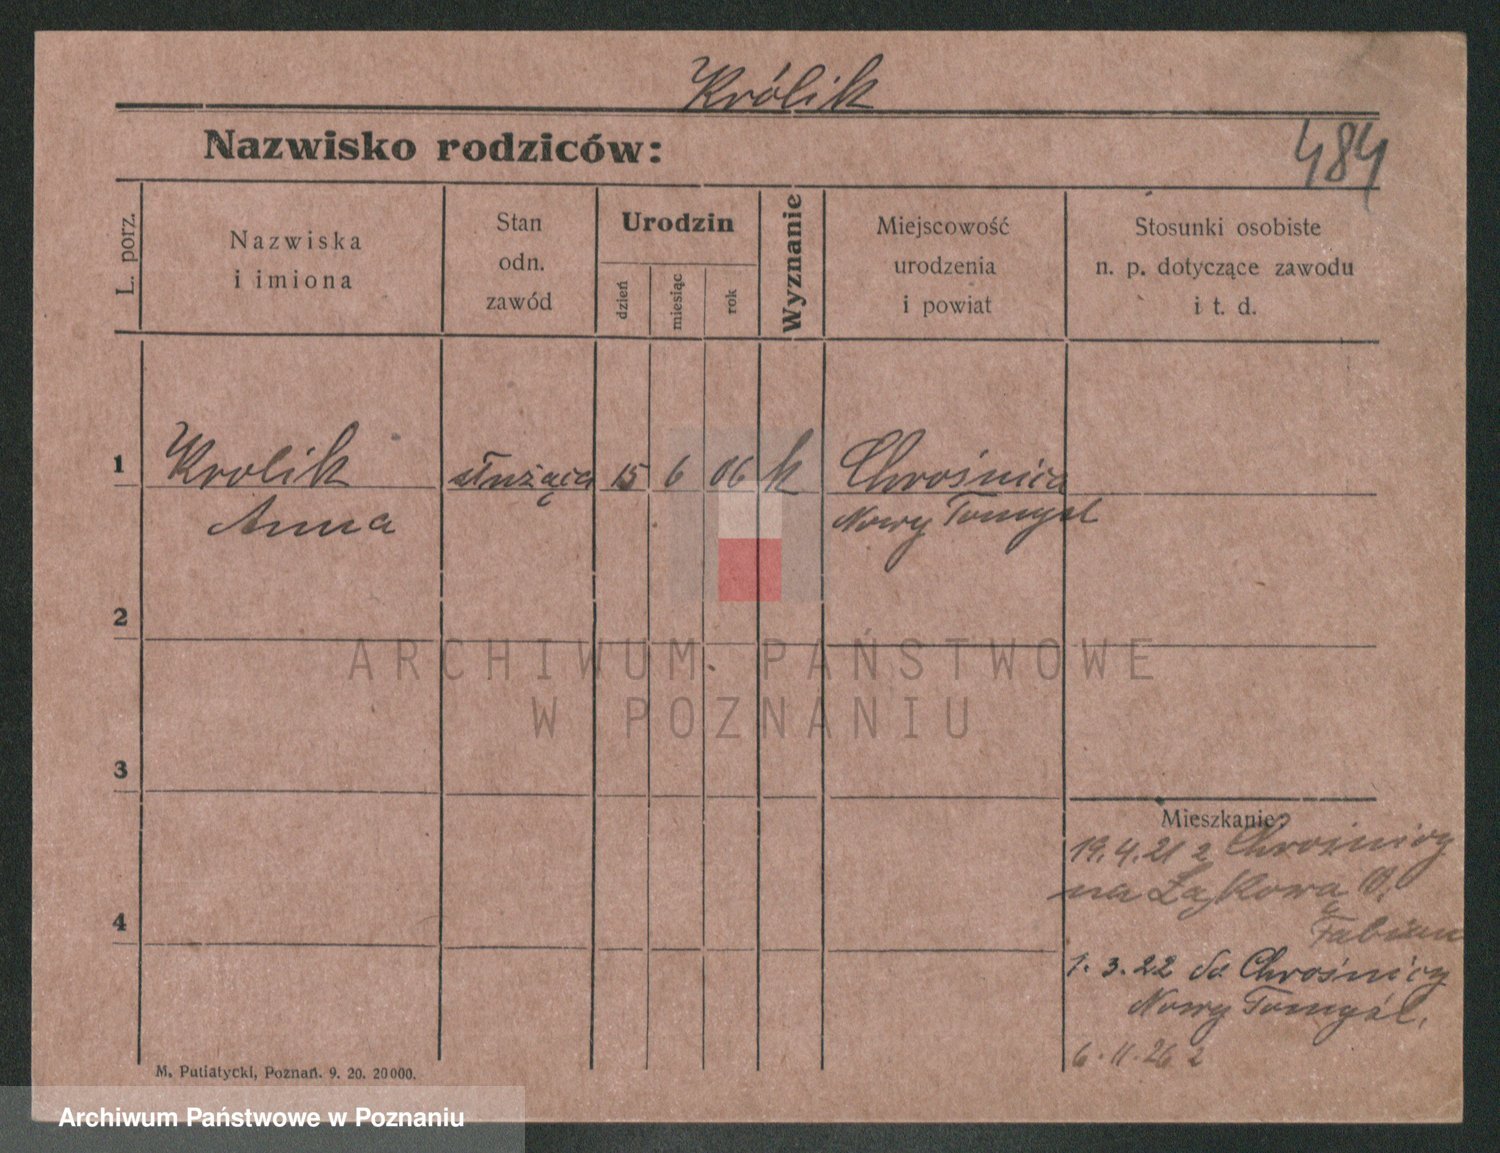 Królik
Nazwisko rodziców:
484
L. porz.
Nazwiska
i imiona
Stan
odn.
zawód
Urodzin
dzień
miesiąc
rok
Wyznanie
Miejscowość
urodzenia
i powiat
Stosunki osobiste
n. p. dotyczące zawodu
i t. d.
1
Krolik służąca 15 6 06 k Chrośnica
Anna Nowy Tomyśl
2
ARCHIWUM PAŃSTWOWE
W POZNANIU
3
Mieszkanie:
19.4.21 z Chrośnicy
na Łąkowa
u
Fabian
4
1.3.22 do Chrośnicy
Nowy Tomyśl.
6.11.26 z
M. Putiatycki, Poznań. 9. 20. 20000.
Archiwum Państwowe w Poznaniu